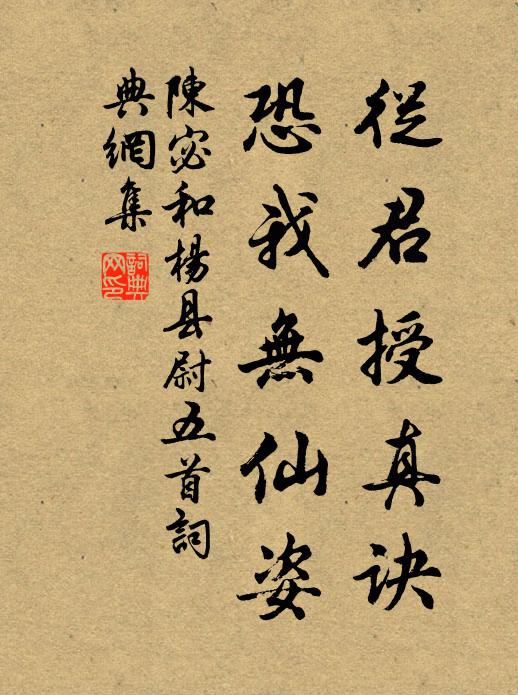 從君授真訣
恐我無仙姿
陳宓和楊县尉五首詞
典網集
詞典網印